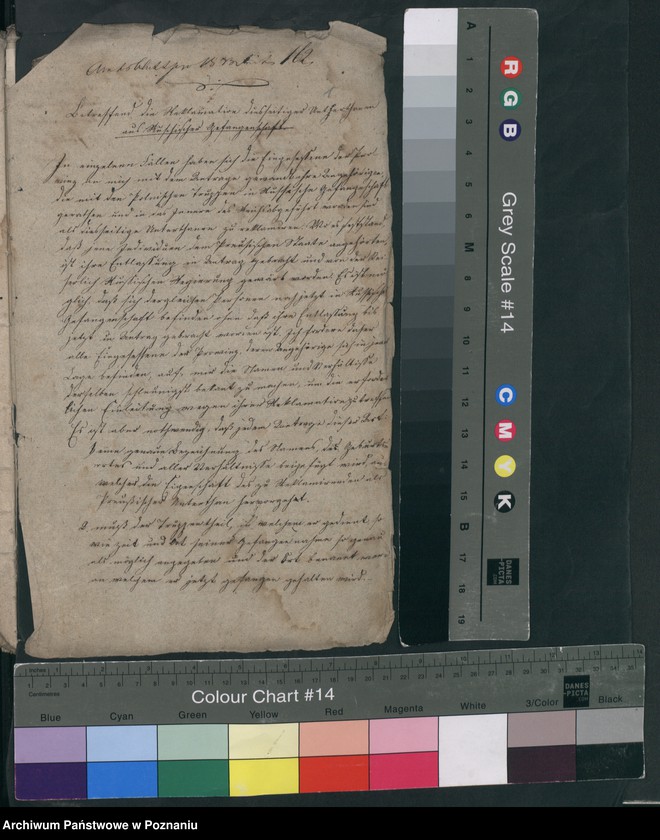 Betreffend die Reklamation diesseitiger Unterthanen
aus Russischer Gefangenschaft.
In einzelnen Fällen haben sich die Eingesessene der Pro-
vinz an mich mit dem Antrage gewandt ihre Angehörige,
die mit den Polnischen Truppen in Russische Gefangenschaft
gerathen und in das Innere des Reichs abgeführt worden sind
als diesseitige Unterthanen zu reklamiren. Wo es feststand
daß jene Individuen dem Preußischen Staate angehörten,
ist ihre Entlassung in Antrag gebracht und von der Kai-
serlich Russischen Regierung gewährt worden. Es ist mö-
glich daß sich dergleichen Personen noch jetzt in Russischer
Gefangenschaft befinden ohne daß ihre Entlassung bis
jetzt in Antrag gebracht worden ist. Ich fordere daher
alle Eingesessene der Provinz deren Angehörige sich in jener
Lage befinden, auf, mir die Namen und Verhältnisse
derselben schleunigst bekant zu machen, um die erforder-
lichen Einleitung wegen ihrer Reklamation zu treffen
Es ist aber nothwendig, daß jedem Antrage dieser Art
1 eine genaue Bezeichnung des Namens, des Geburts
ortes und aller Verhältnisse beigefügt wird, aus
welchen die Eigenschaft des zu Reklamirenden als
Preußischer Unterthan hervorgehet.
2. muß der Truppentheil, zu welchem er gedient, so
wie Zeit und Ort seiner Gefangennahme so genau
als möglich angegeben und der Ort benannt wer-
an welchem er jetzt gefangen gehalten wird.
A
1
2
3
4
5
6
M
8
9
10
11
12
13
14
15
B
17
18
19
R
G
B
Grey Scale #14
C
M
Y
K
DANES
-PICTA
.COM
Inches
Centimetres
Colour Chart #14
DANES
-PICTA
.COM
Blue Cyan Green Yellow Red Magenta White 3/Color Black
Archiwum Państwowe w Poznaniu